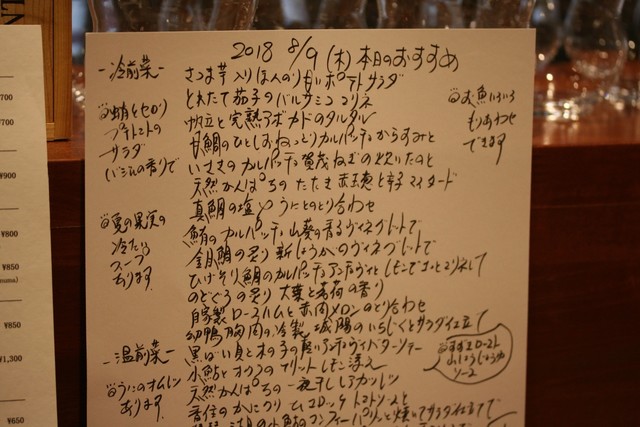 2018 8/9 (木) 本日のおすすめ
-冷前菜-
さつま芋入りほんのり甘いポテトサラダ
とれたて茄子のバルサミコマリネ
帆立と完熟アボカドのタルタル
甘鯛のひとしおねっとりカルパッチョからすみと
いさきのカルパッチョ賀茂ねぎの炊いたのと
天然かんぱちのたたき 赤玉葱と辛子マスタード
真鯛の塩〆うにとのとり合わせ
鮪のカルパッチョ 山葵の香るヴィネグレットで
金目鯛の炙り 新しょうがのヴィネグレットで
ひげそり鯛のカルパッチョ アンチョヴィとレモンで
のどぐろの炙り 大葉と茗荷の香り
自家製ロースハムと赤肉メロンのとり合わせ
幼鴨胸肉の冷製 城陽のいちじくとサラダ仕立て
蛸とセロリ
プチトマトの
サラダ
バジルの香りで
夏の果実の
冷たい
スープ
あります
お魚いろいろ
もりあわせ
できます
-温前菜-
黒ばい貝と木の子の軽いアンチョヴィバターソテー
小鮎とオクラのフリット レモン添え
天然かんぱちの一夜干し
香住のかにクリームコロッケ トマトソースと
うにのオムレツ
あります
ロースト
ソース
700
700
¥900
¥800
¥850
¥850
¥1,300
¥650